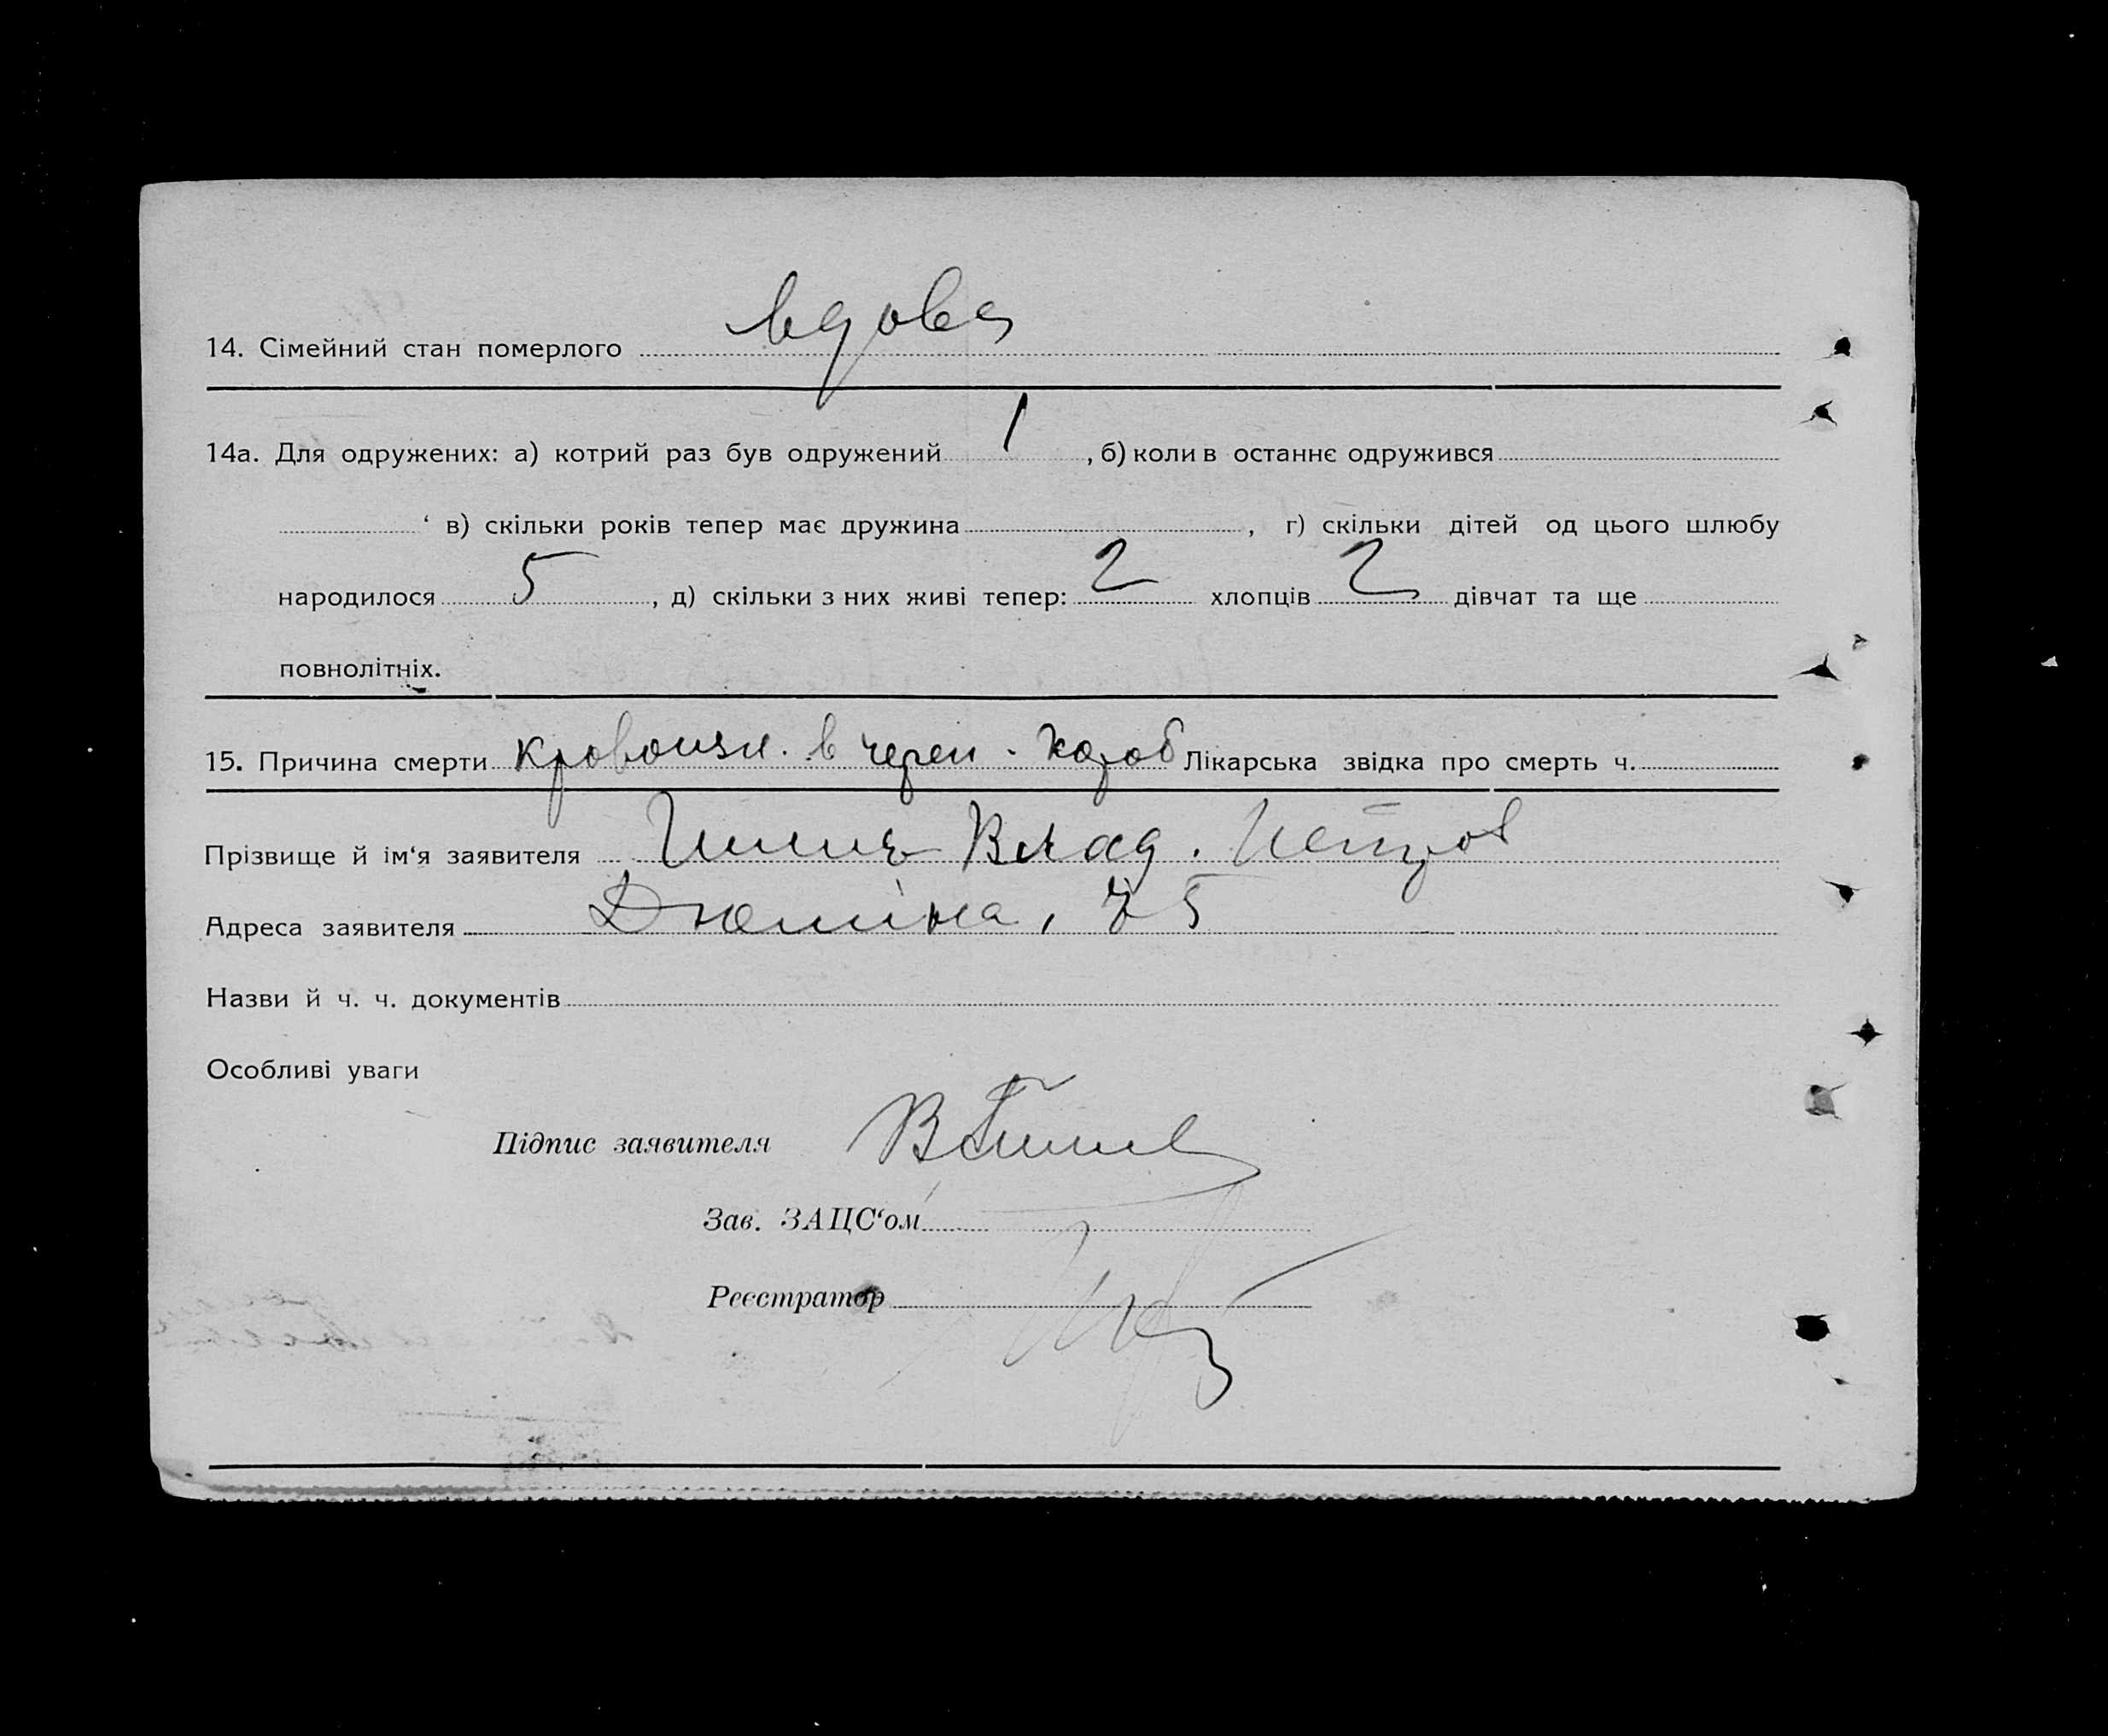 14. Сімейний стан померлого вдова
14а. Для одружених: а) котрий раз був одружений 1 , б) коли в останнє одружився
‘ в) скільки років тепер має дружина , г) скільки дітей од цього шлюбу
народилося 5 , д) скільки з них живі тепер: 2 хлопців 2 дівчат та ще
повнолітніх.
15. Причина смерти Кровоизл. в череп. короб Лікарська звідка про смерть ч.
Прізвище й ім‘я заявителя Влад. Петров
Адреса заявителя
Назви й ч. ч. документів
Особливі уваги
Підпис заявителя
Зав. ЗАЦС‘ом
Реєстратор